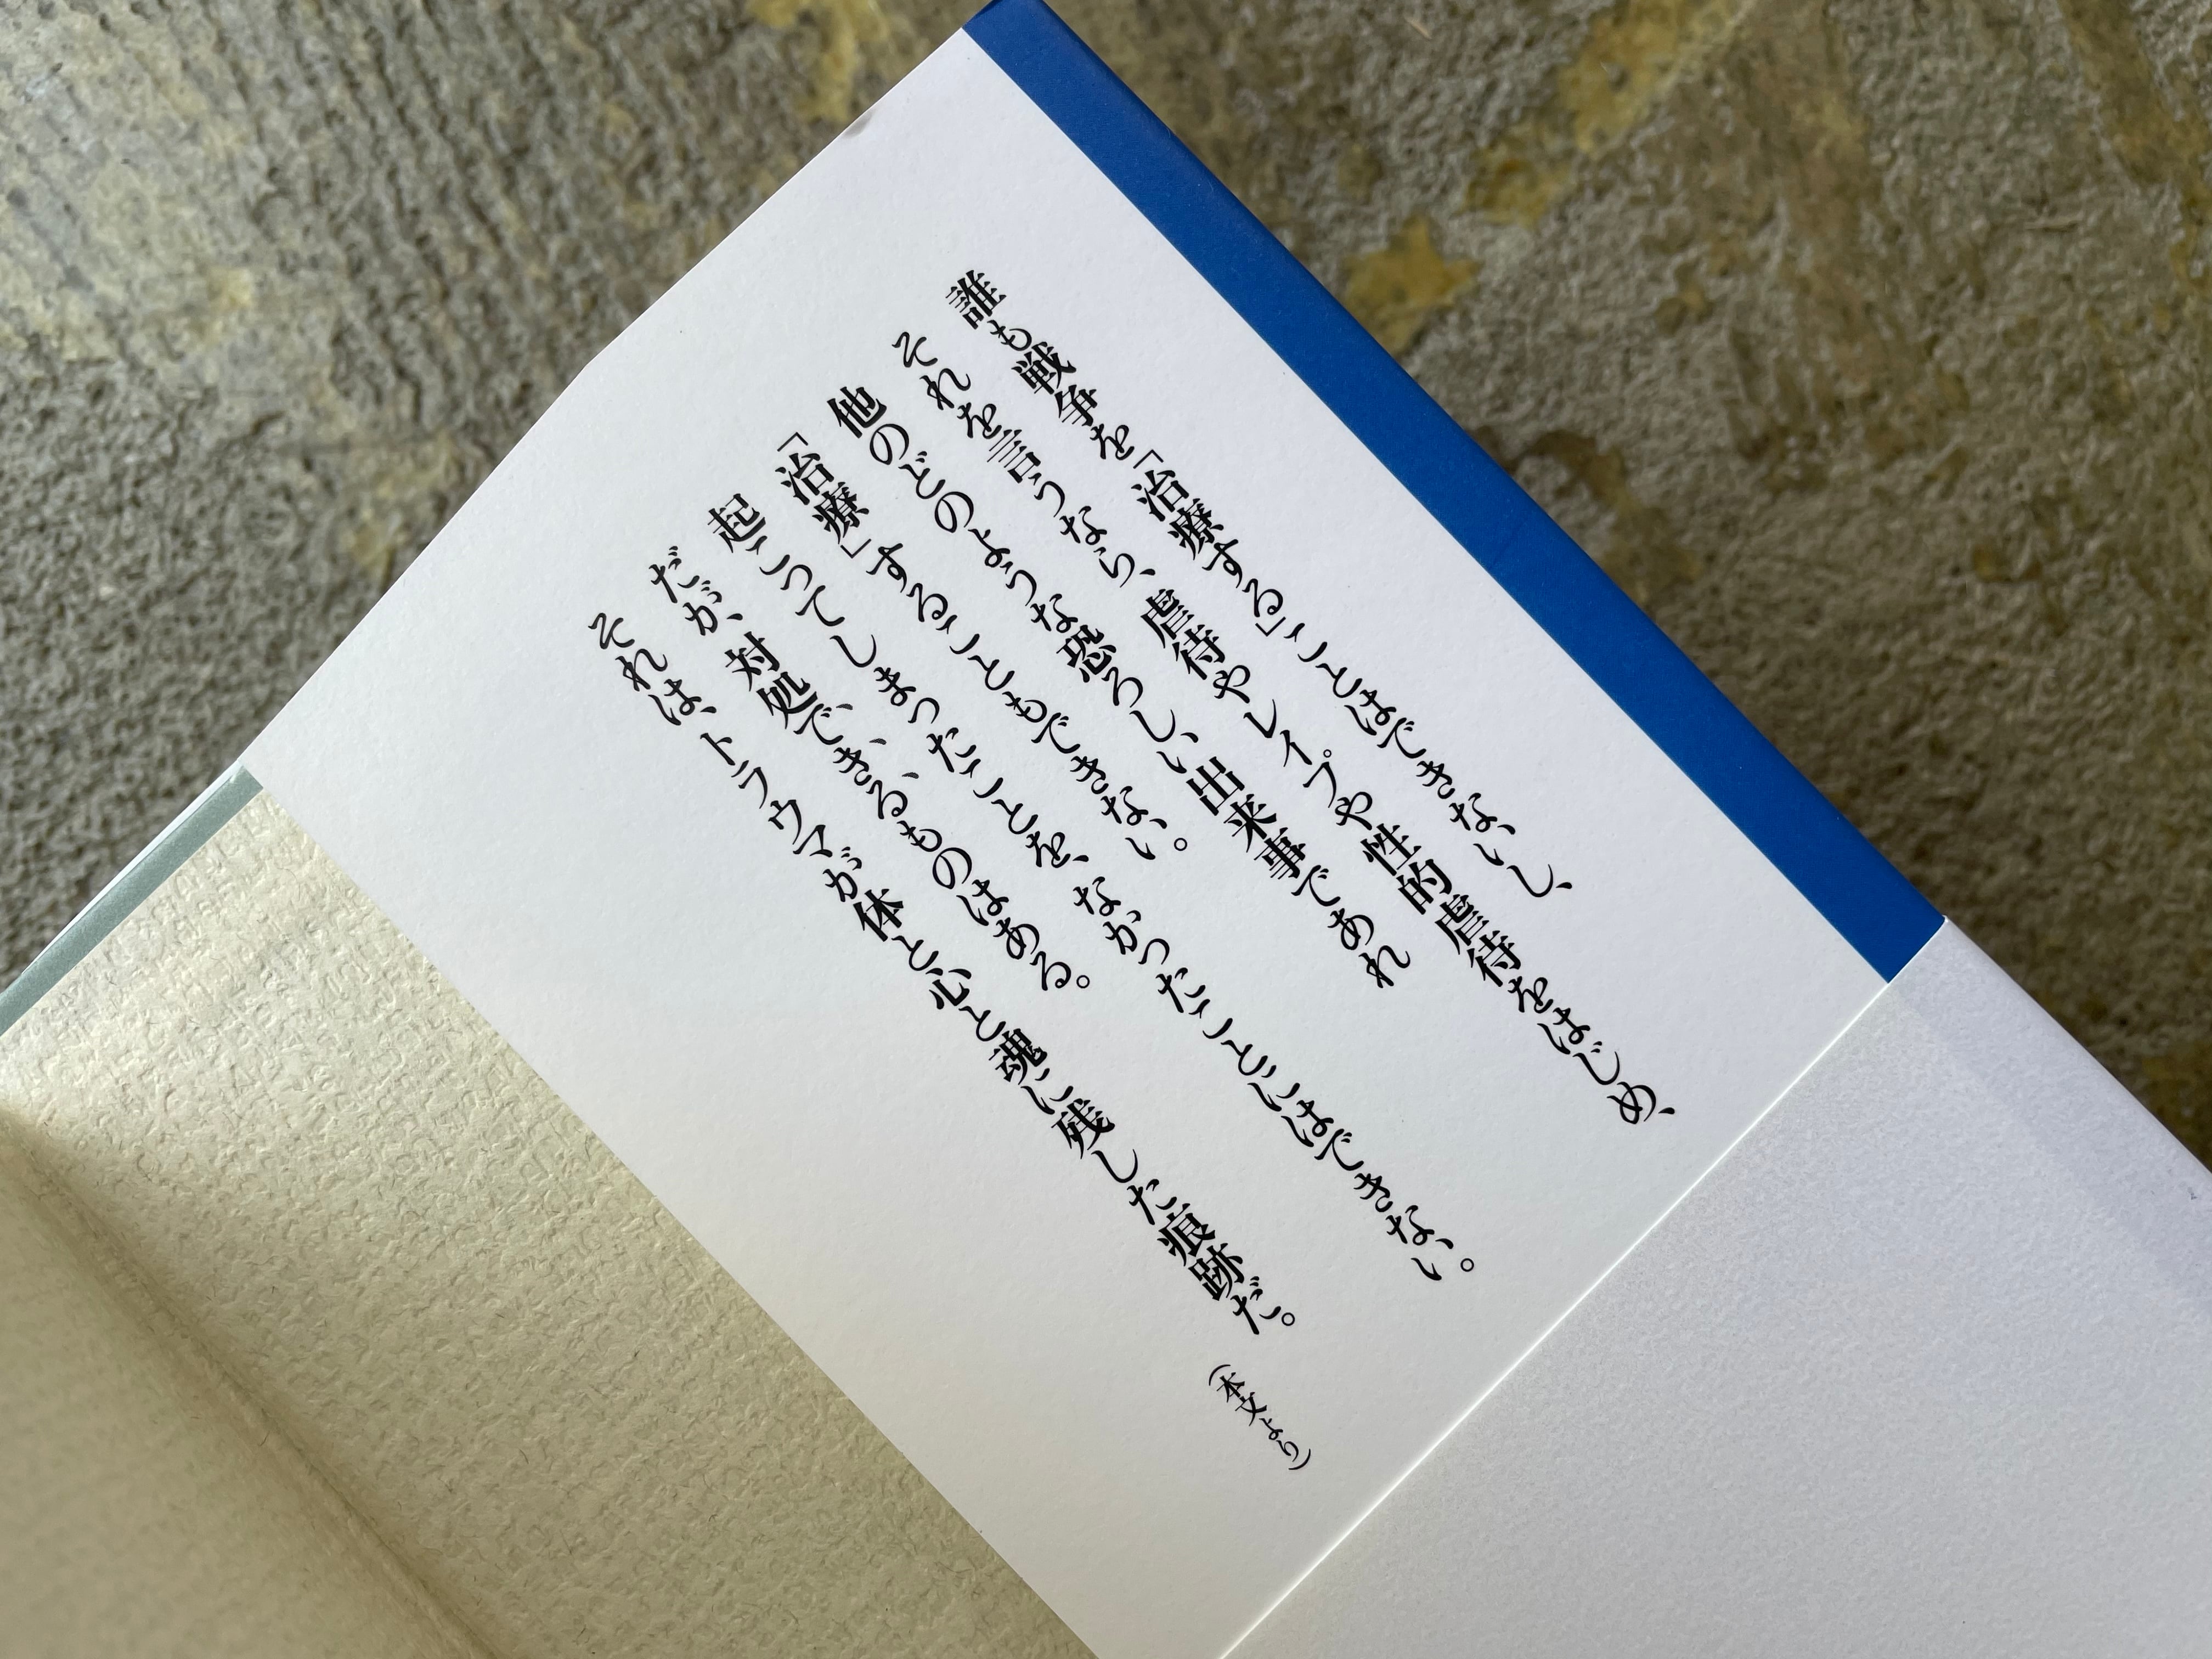 誰も戦争を「治療する」ことはできないし、
それを言うなら、虐待やレイプや性的虐待をはじめ、
他のどのような恐ろしい出来事であれ
「治療」することもできない。
起こってしまったことを、なかったことにはできない。
だが、対処できるものはある。
それは、トラウマが体と心と魂に残した痕跡だ。
(本文より)